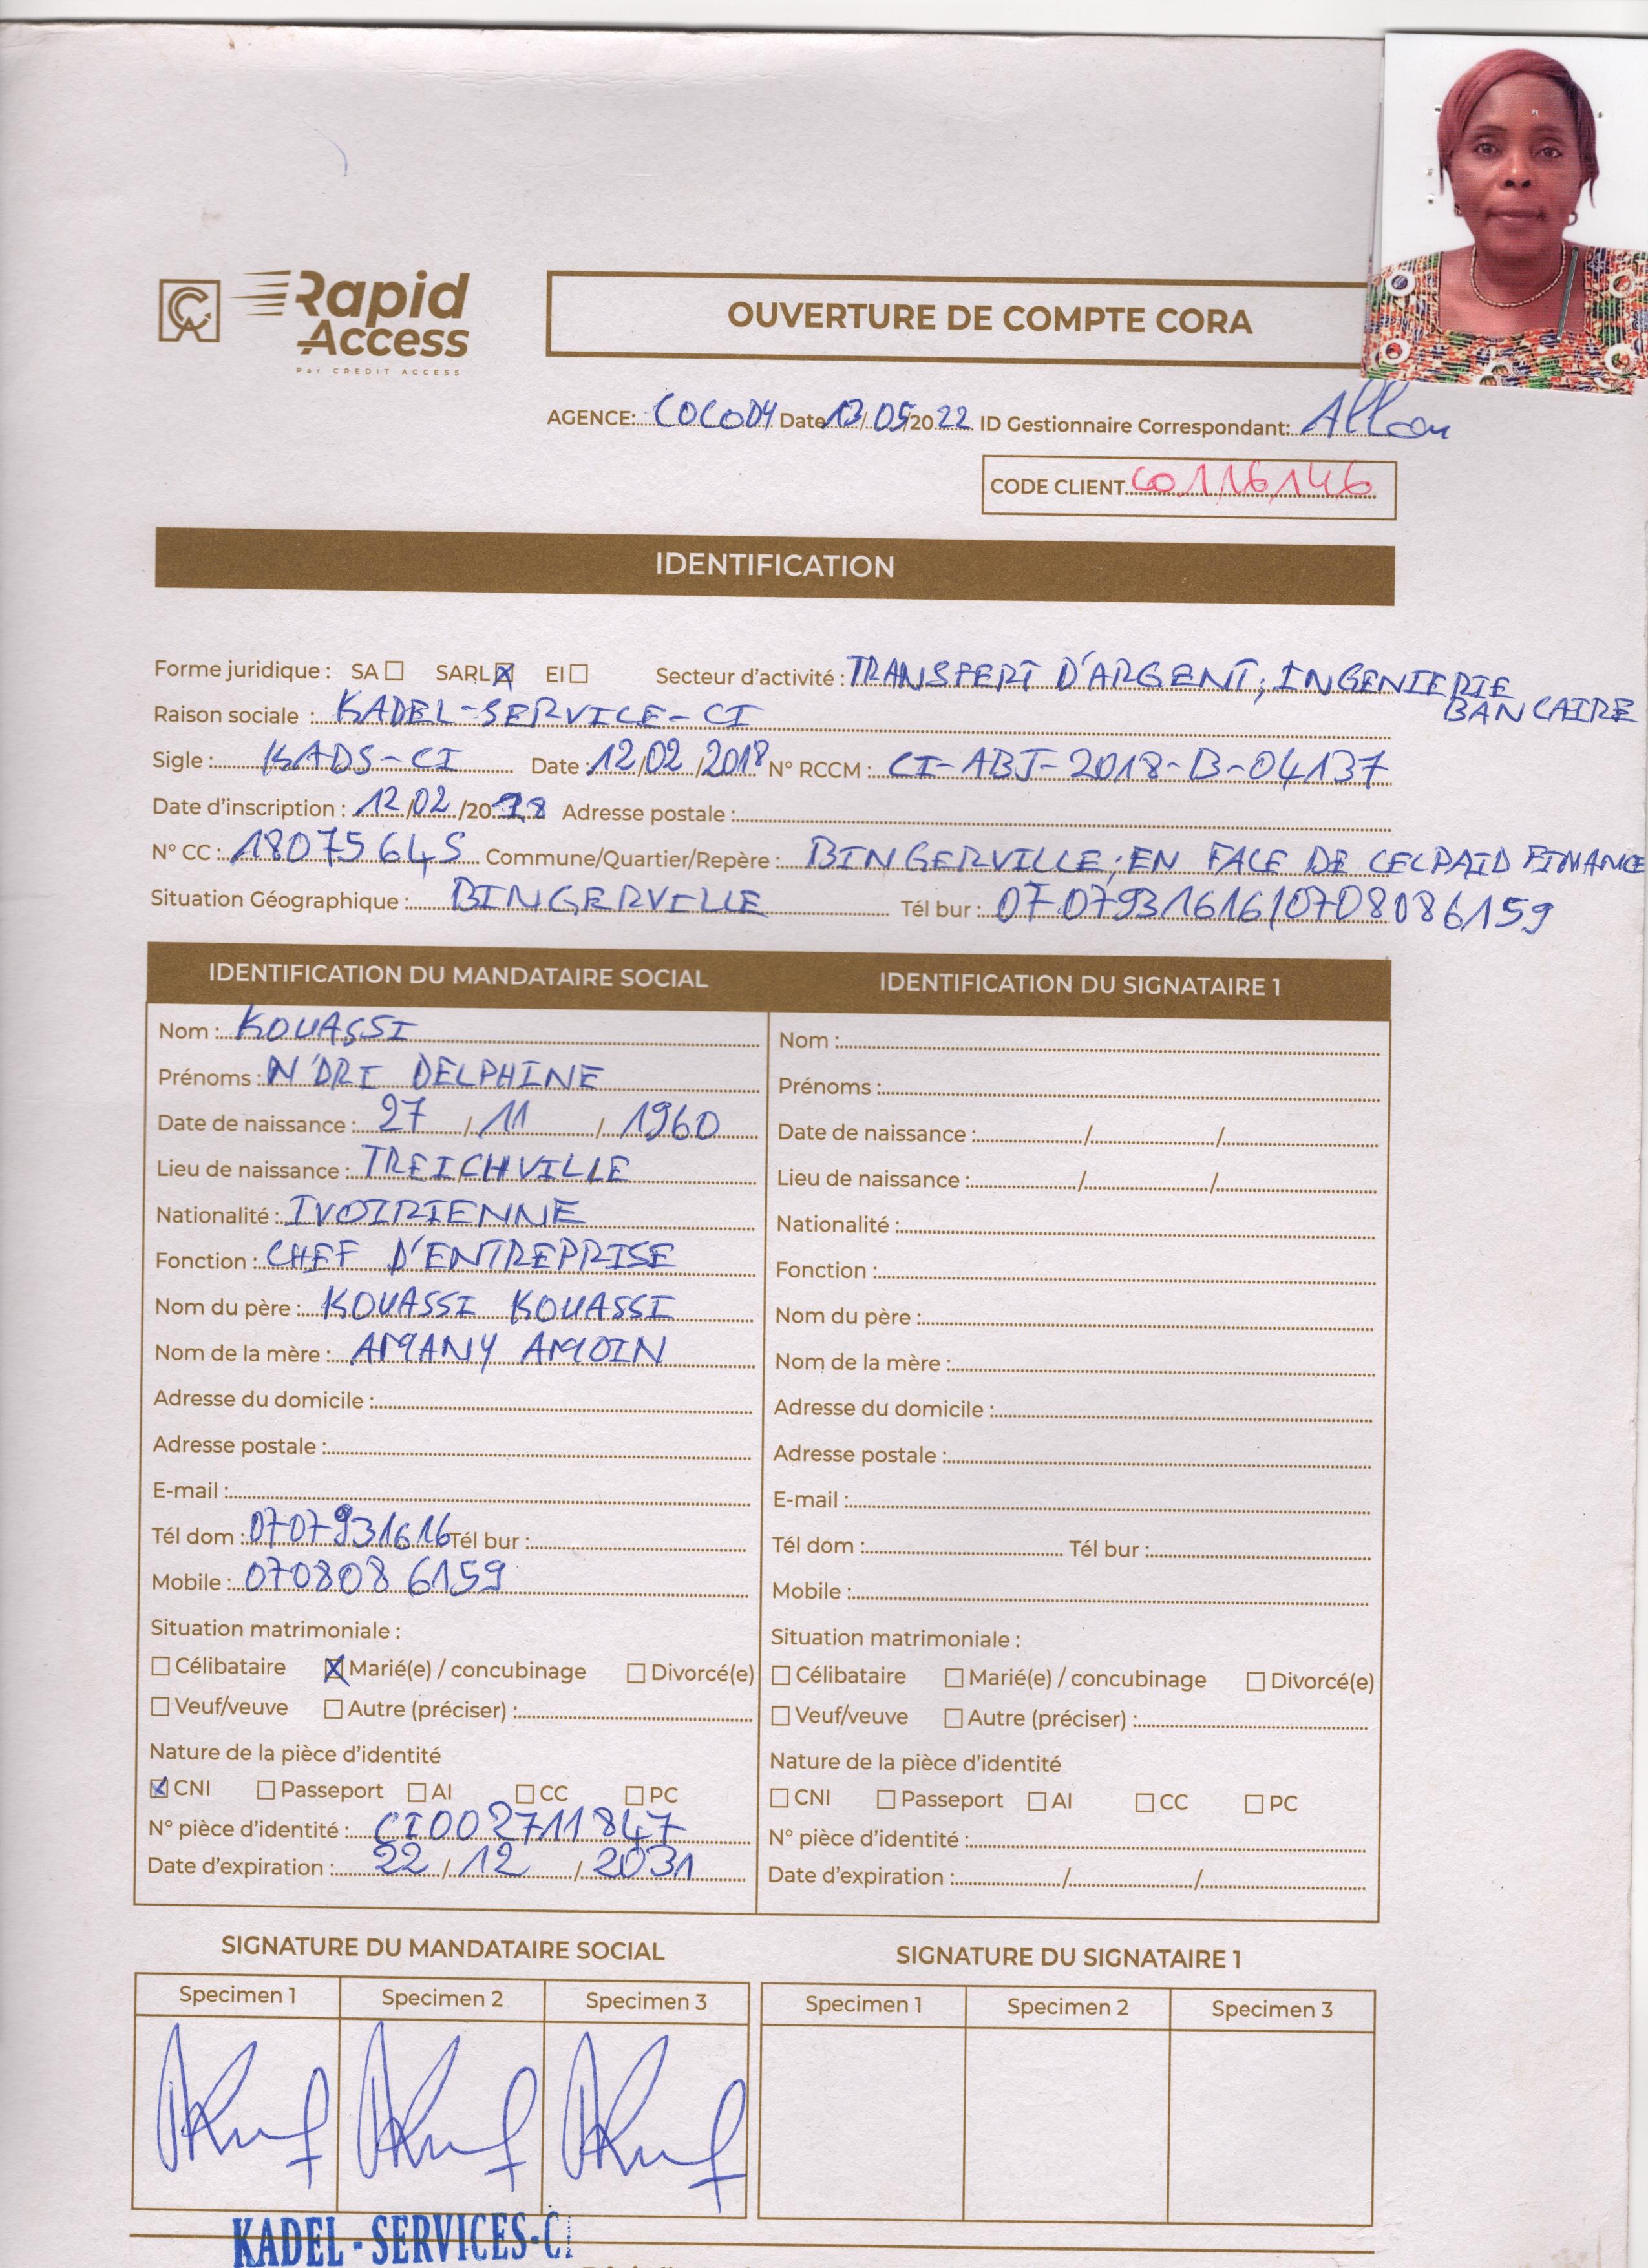 Rapid
Access
Par CREDIT ACCESS
OUVERTURE DE COMPTE CORA
AGENCE: COCODY Date 13/05/2022 ID Gestionnaire Correspondant:
CODE CLIENT CO116146
IDENTIFICATION
Forme juridique : SA SARL EI Secteur d'activité : TRANSFERT D'ARGENT, INGENIERIE
BANCAIRE
Raison sociale : KADEL-SERVICE-CI
Sigle : KADS-CI Date : 12/02/2018 N° RCCM : CI-ABJ-2018-B-04137
Date d'inscription : 12/02/2018 Adresse postale :
N° CC : 1807564 S Commune/Quartier/Repère : BINGERVILLE, EN FACE DE CELPAID FINANCE
Situation Géographique : BINGERVILLE Tél bur : 0707931616/0708086159
IDENTIFICATION DU MANDATAIRE SOCIAL
Nom : KOUASSI
Prénoms : N'DRI DELPHINE
Date de naissance : 27 / 11 / 1960
Lieu de naissance : TREICHVILLE
Nationalité : IVOIRIENNE
Fonction : CHEF D'ENTREPRISE
Nom du père : KOUASSI KOUASSI
Nom de la mère : AMANY AMOIN
Adresse du domicile :
Adresse postale :
E-mail :
Tél dom : 0707931616 Tél bur :
Mobile : 0708086159
Situation matrimoniale :
Célibataire Marié(e) / concubinage Divorcé(e)
Veuf/veuve Autre (préciser) :
Nature de la pièce d'identité
CNI Passeport AI CC PC
N° pièce d'identité : CI002711847
Date d'expiration : 22 / 12 / 2031
IDENTIFICATION DU SIGNATAIRE 1
Nom :
Prénoms :
Date de naissance : / /
Lieu de naissance : / /
Nationalité :
Fonction :
Nom du père :
Nom de la mère :
Adresse du domicile :
Adresse postale :
E-mail :
Tél dom : Tél bur :
Mobile :
Situation matrimoniale :
Célibataire Marié(e) / concubinage Divorcé(e)
Veuf/veuve Autre (préciser) :
Nature de la pièce d'identité
CNI Passeport AI CC PC
N° pièce d'identité :
Date d'expiration : / /
SIGNATURE DU MANDATAIRE SOCIAL
Specimen 1 Specimen 2 Specimen 3
SIGNATURE DU SIGNATAIRE 1
Specimen 1 Specimen 2 Specimen 3
KADEL - SERVICES-CI